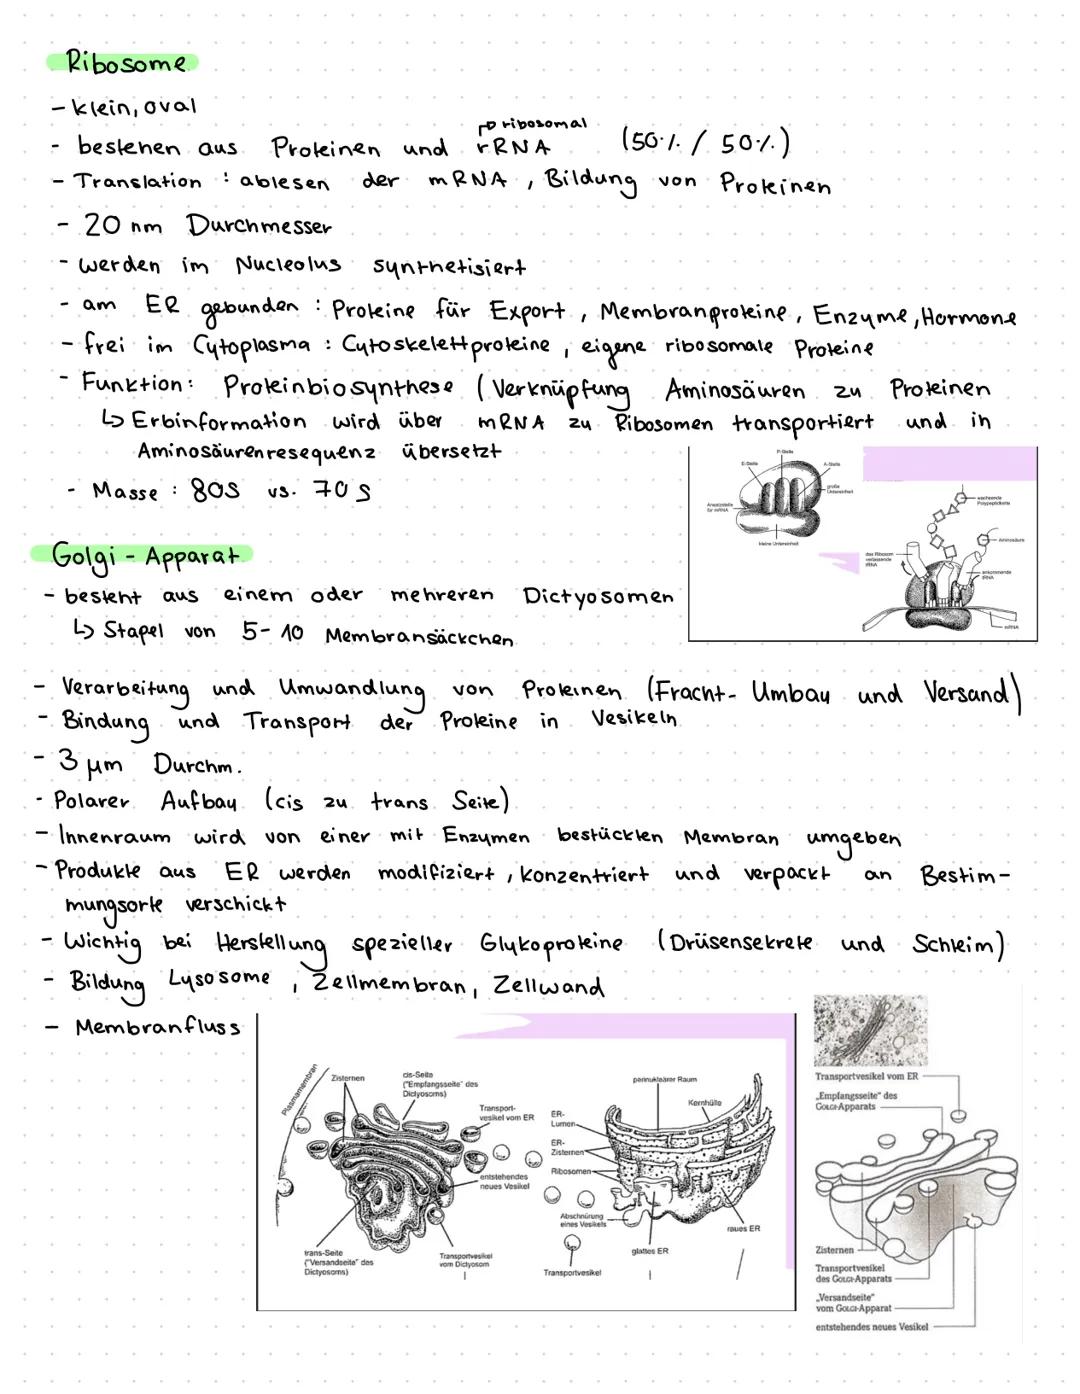 Ribosome
- klein, oval
→ ribosomal
- bestehen aus Proteinen und rRNA (50% / 50%)
- Translation : ablesen der mRNA , Bildung von Proteinen
- 20 nm Durchmesser
- werden im Nucleolus synthetisiert
- am ER gebunden : Proteine für Export , Membranproteine , Enzyme , Hormone
- frei im Cytoplasma : Cytoskelettproteine , eigene ribosomale Proteine
- Funktion : Proteinbiosynthese ( Verknüpfung Aminosäuren zu Proteinen
↳ Erbinformation wird über mRNA zu Ribosomen transportiert und in
Aminosäurenresequenz übersetzt
- Masse : 80S vs. 70S
P-Stelle
E-Stelle
A-Stelle
große
Untereinheit
Ansatzstelle
für mRNA
kleine Untereinheit
wachsende
Polypeptidkette
Aminosäure
das Ribosom
verlassende
tRNA
ankommende
tRNA
mRNA
Golgi - Apparat
- besteht aus einem oder mehreren Dictyosomen
↳ Stapel von 5-10 Membransäckchen
- Verarbeitung und Umwandlung von Proteinen (Fracht- Umbau und Versand)
- Bindung und Transport der Proteine in Vesikeln
- 3 µm Durchm.
- Polarer Aufbau (cis zu trans Seite)
- Innenraum wird von einer mit Enzymen bestückten Membran umgeben
- Produkte aus ER werden modifiziert , konzentriert und verpackt an Bestim-
mungsorte verschickt
- Wichtig bei Herstellung spezieller Glykoproteine (Drüsensekrete und Schleim)
- Bildung Lysosome , Zellmembran, Zellwand
- Membranfluss
Plasmamembran
Zisternen
cis-Seite
("Empfangsseite" des
Dictyosoms)
Transport-
vesikel vom ER
entstehendes
neues Vesikel
trans-Seite
("Versandseite" des
Dictyosoms)
Transportvesikel
vom Dictyosom
perinukleärer Raum
Kernhülle
ER-
Lumen
ER-
Zisternen
Ribosomen
Abschnürung
eines Vesikels
raues ER
glattes ER
Transportvesikel
Transportvesikel vom ER
„Empfangsseite" des
GOLGI-Apparats
Zisternen
Transportvesikel
des GOLGI-Apparats
„Versandseite"
vom GOLGI-Apparat
entstehendes neues Vesikel